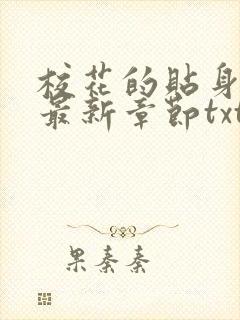 校花的貼身
最新章節txt
果秦秦